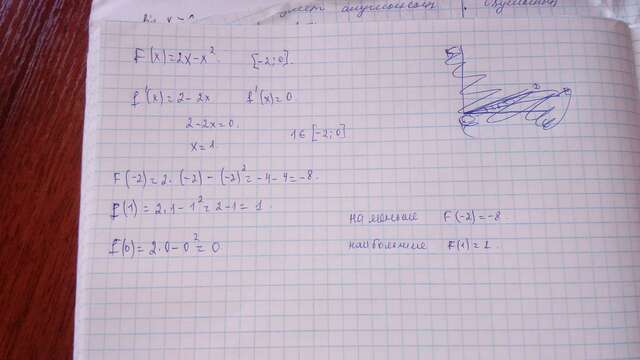 F(x)=2x-x². [-2;0].
f'(x)=2-2x f'(x)=0
2-2x=0.
x=1 1∈[-2;0]
F(-2)=2·(-2)-(-2)²=-4-4=-8.
f(1)=2·1-1²=2-1=1.
f(0)=2·0-0²=0
на меньше F(-2)=-8.
наибольшие F(1)=1.